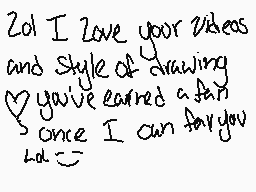 Lol I Love your videos
and style of drawing
♡ you've earned a fan
once I can fav you
Lol